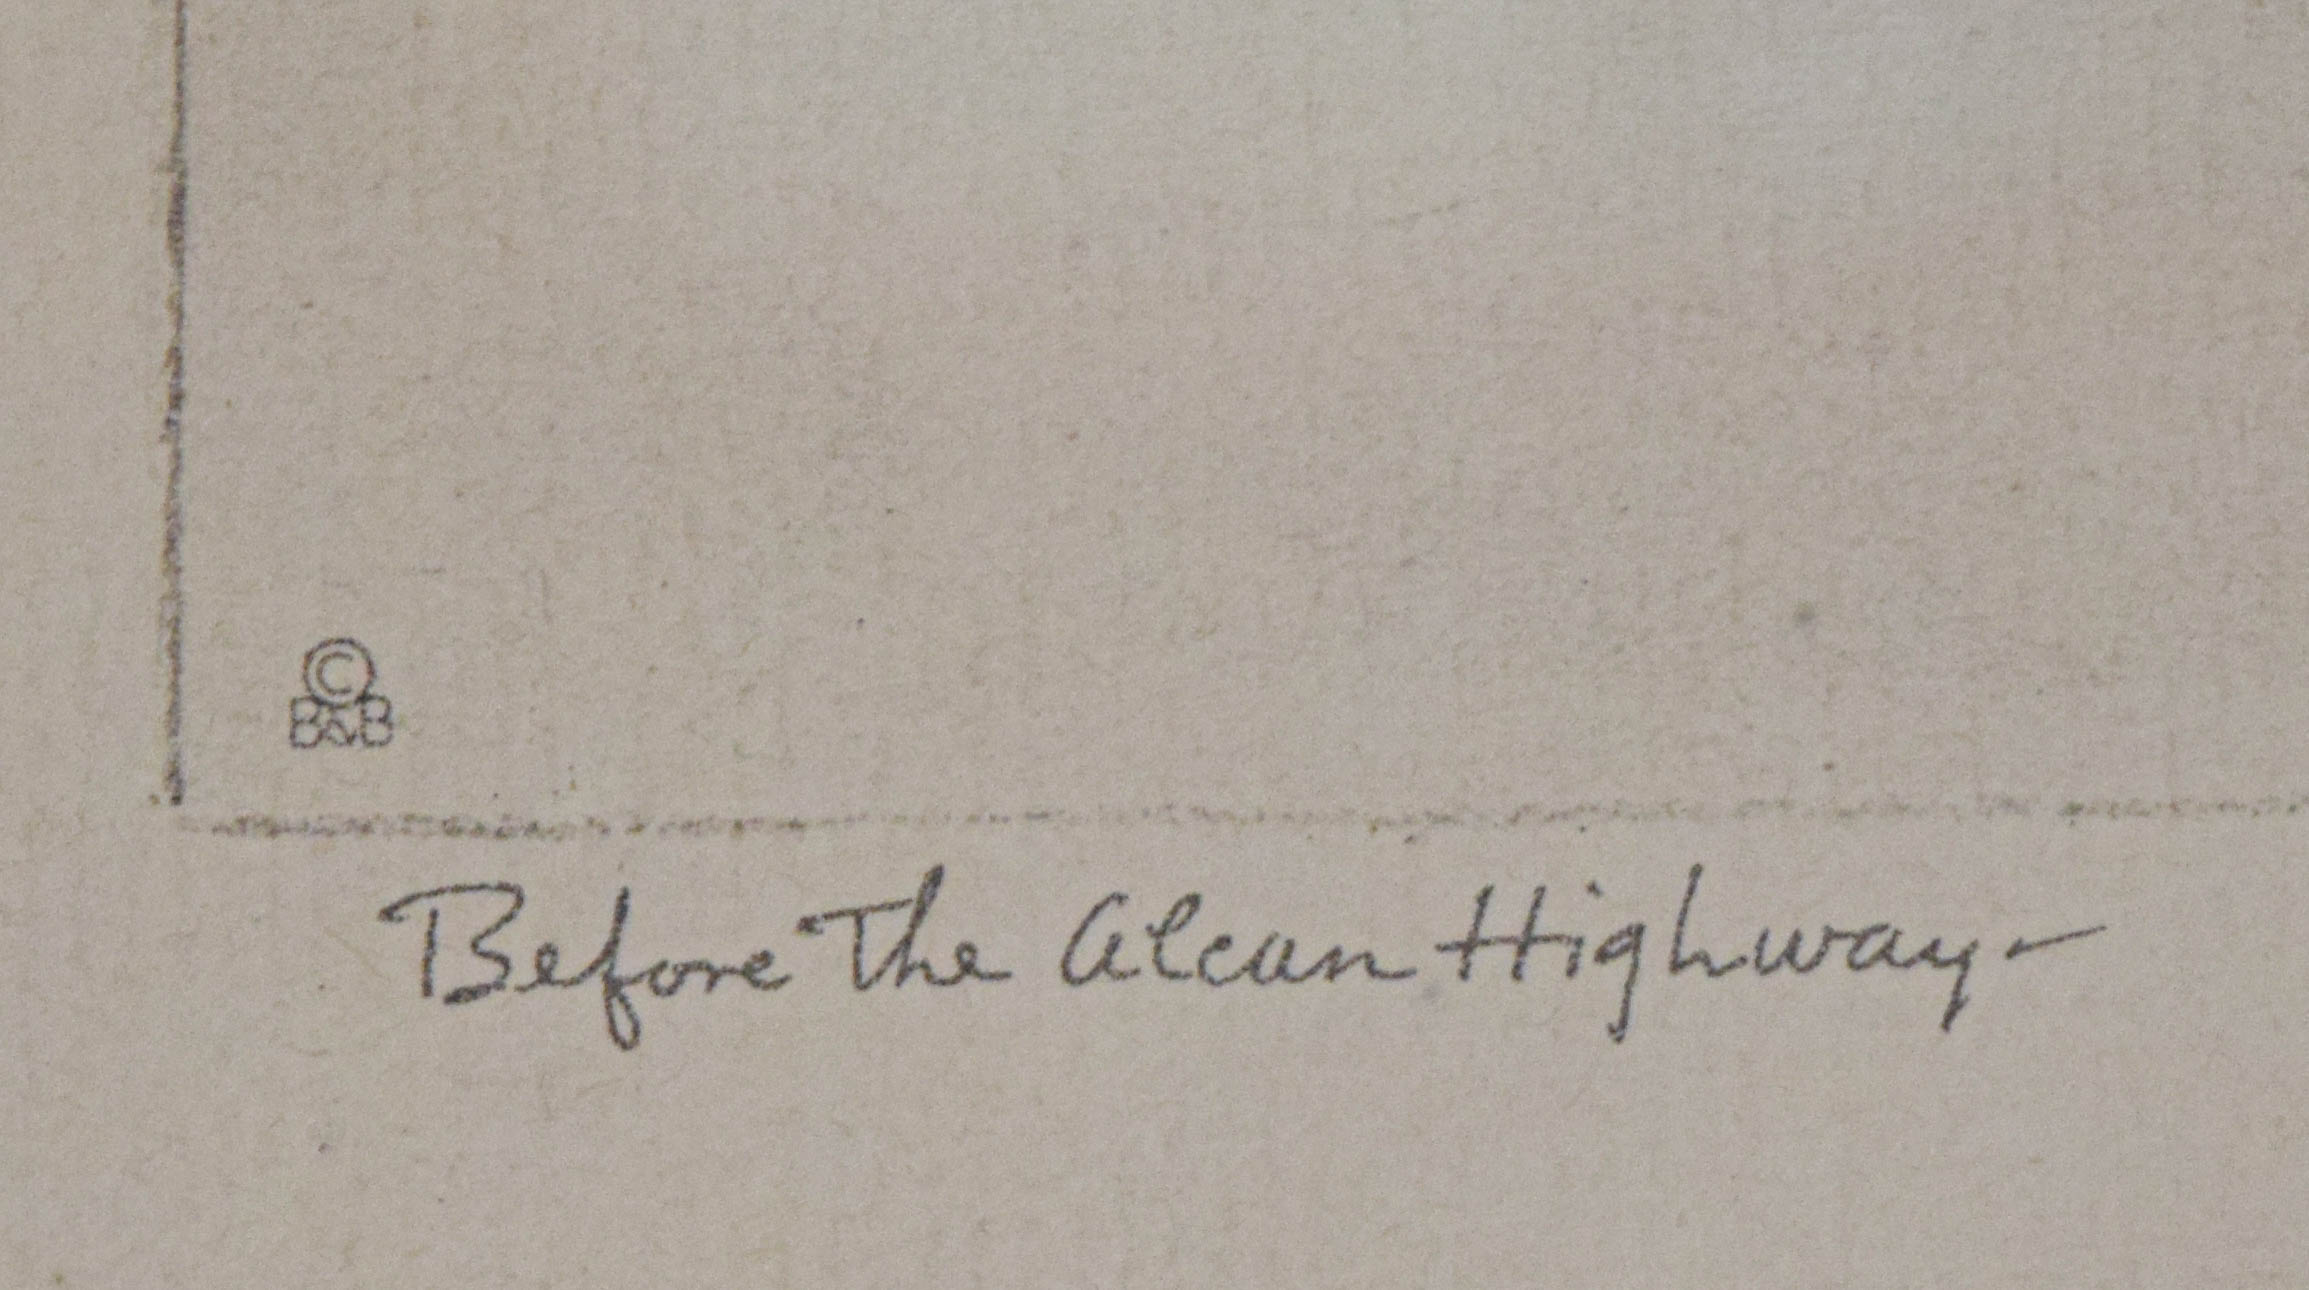 ©
B&B
Before The Alcan Highway-